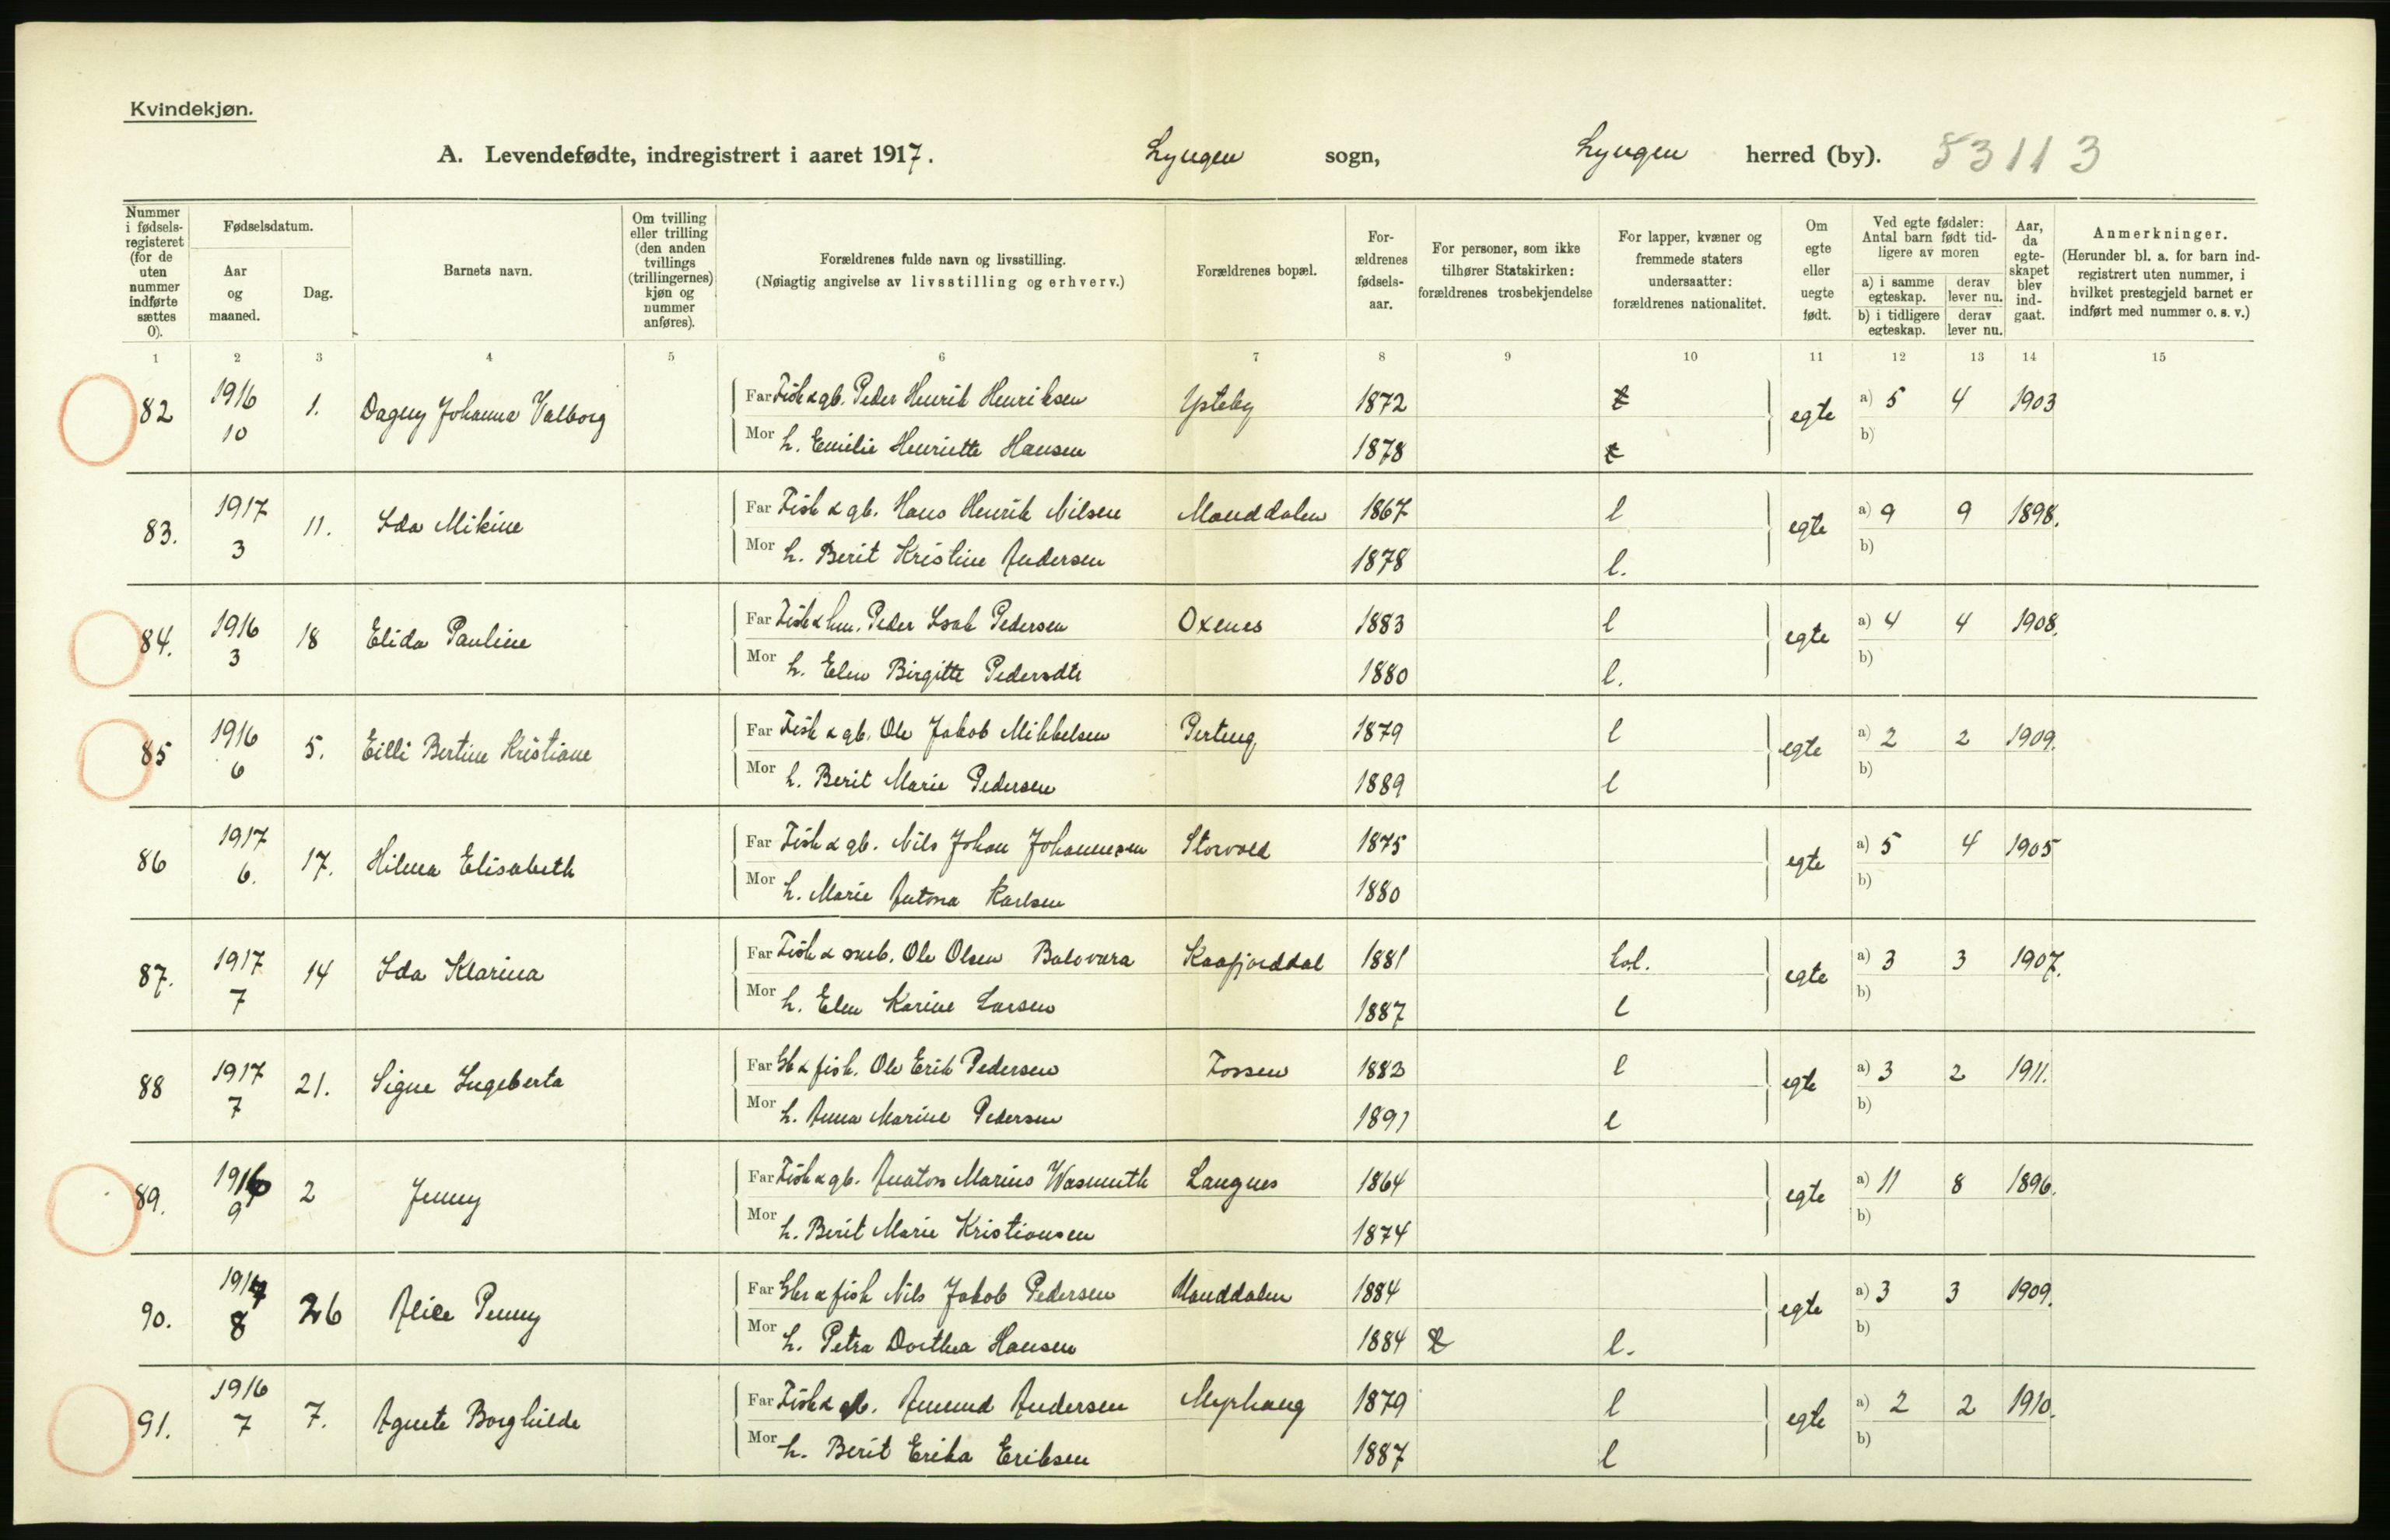 Kvindekjøn.
A. Levendefødte, indregistrert i aaret 1917. Lyngen sogn, Lyngen herred (by). 53113
Nummer i fødselsregisteret (for de uten nummer indførte sættes 0).
Fødselsdatum.
Aar og maaned.
Dag.
Barnets navn.
Om tvilling eller trilling (den anden tvillings (trillingernes) kjøn og nummer anføres).
Forældrenes fulde navn og livsstilling.
(Nøiagtig angivelse av livsstilling og erhverv.)
Forældrenes bopæl.
Forældrenes fødselsaar.
For personer, som ikke tilhører Statskirken: forældrenes trosbekjendelse
For lapper, kvæner og fremmede staters undersaatter: forældrenes nationalitet.
Om egte eller uegte født.
Ved egte fødsler: Antal barn født tidligere av moren
a) i samme egteskap.
derav lever nu.
b) i tidligere egteskap.
derav lever nu.
Aar, da egteskapet blev indgaat.
Anmerkninger.
(Herunder bl. a. for barn indregistrert uten nummer, i hvilket prestegjeld barnet er indført med nummer o. s. v.)
1 2 3 4 5 6 7 8 9 10 11 12 13 14 15
82 1916 10 1. Dagny Johanna Valborg Far Fisk & gb. Peder Henrik Henriksen Ysteby 1872 egte a) 5 4 1903
Mor h. Emilie Henriette Hansen 1878 b)
83. 1917 3 11. Ida Mikine Far Fisk & gb. Hans Henrik Nilsen Manddalen 1867 l egte a) 9 9 1898.
Mor h. Berit Kristine Andersen 1878 l. b)
84. 1916 3 18 Elida Pauline Far Fisk & hm. Peder Isak Pedersen Oxenes 1883 l egte a) 4 4 1908.
Mor h. Elen Birgitte Pedersdtr 1880 l. b)
85 1916 6 5. Eilli Bertine Kristiane Far Fisk & gb. Ole Jakob Mikkelsen 1879 l egte a) 2 2 1909.
Mor h. Berit Marie Pedersen 1889 l b)
86 1917 6. 17. Hilma Elisabeth Far Fisk & gb. Nils Johan Johannesen Storvold 1875 egte a) 5 4 1905
Mor h. Marie Antona Karlsen 1880 b)
87. 1917 7 14 Ida Klarina Far Fisk & Ole Olsen Balovara Kaafjorddal 1881 egte a) 3 3 1907.
Mor h. Elen Karine Larsen 1887 l b)
88 1917 7 21. Signe Ingeberta Far Gb & fisk. Ole Erik Pedersen Fossen 1883 l egte a) 3 2 1911.
Mor h. Anna Marine Pedersen 1891 l b)
89. 1916 9 2 Jenny Far Fisk & gb. Anaton Marius Wasmuth Langnes 1864 egte a) 11 8 1896.
Mor h. Berit Marie Kristiansen 1874 b)
90. 1917 8 26 Alice Penny Far Gbr & fisk Nils Jakob Pedersen Manddalen 1884 egte a) 3 3 1909.
Mor h. Petra Dorthea Hansen 1884 l. b)
91. 1916 7 7. Agnete Borghilde Far Fisk & Amund Andersen Myrhaug 1879 l egte a) 2 2 1910.
Mor h. Berit Erika Eriksen 1887 l b)